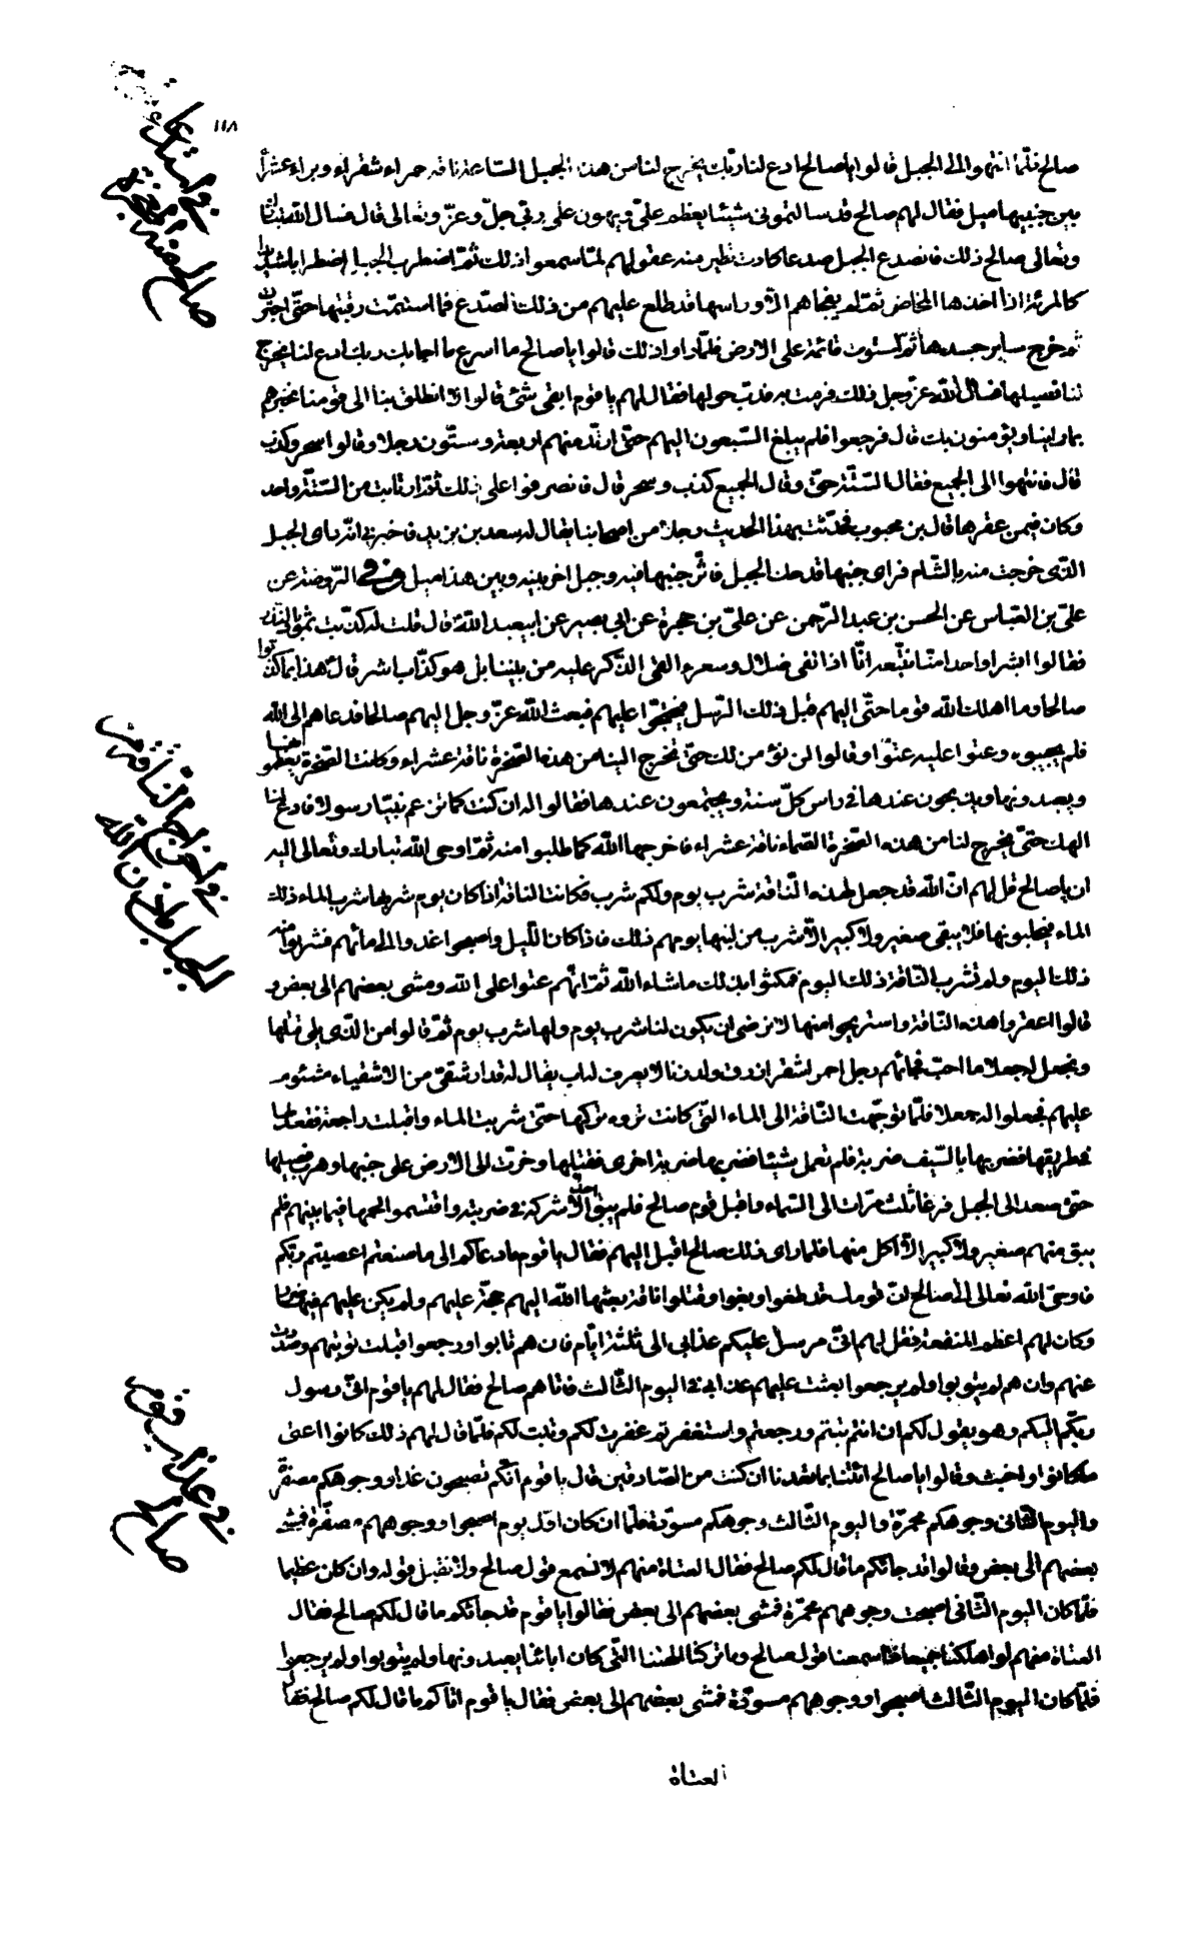 ١١٨
صالح فلمّا انتهوا الى الجبل قالوا يا صالح ادع لنا ربّك يخرج لنا من هذا الجبل السّاعة ناقة حمراء شقراء وبراء عشراء
بين جنبيها ميل فقال لهم صالح قد سالتمونى شيئا يعظم علىّ ويهون على ربّى جلّ وعزّ وتعالى قال فسال الله تبارك
وتعالى صالح ذلك فانصدع الجبل صدعا كادت تطير منه عقولهم لمّا سمعوا ذلك ثمّ اضطرب الجبل اضطرابا شديدا
كالمرئة اذا اخذها المخاض ثمّ لم يفجاهم الّا وراسها قد طلع عليهم من ذلك الصّدع فما استتمّت رقبتها حتّى اجترّت
ثم خرج ساير جسدها ثمّ استوت قائمة على الارض فلمّا راوا ذلك قالوا يا صالح ما اسرع ما اجابك ربك ادع لنا يخرج
لنا فصيلها فسال الله عزّ وجل ذلك فرمت به فدبّ حولها فقال لهم يا قوم ابقى شئ قالوا لا انطلق بنا الى قومنا نخبرهم
بما راينا ويؤمنون بك قال فرجعوا فلم يبلغ السّبعون اليهم حتّى ارتدّ منهم اربعة وستّون رجلا وقالوا سحر وكذب
قال فانتهوا الى الجميع فقال السّتّة حقّ وقال الجميع كذب وسحر قال فانصرفوا على ذلك ثمّ ارتاب من السّتّة واحد
وكان فيمن عقرها قال بن محبوب فحدّثت بهذا الحديث رجلا من اصحابنا يقال له سعد بن يزيد فاخبرنى انّه راى الجبل
الذّى خرجت منه بالشّام فراى جنبها قد حك الجبل فاثّر جنبها فيه وجبل اخر بينه وبين هذا ميل وفى الرّوضة عن
علىّ بن العبّاس عن الحسن بن عبد الرّحمن عن علىّ بن حمزة عن ابى بصير عن ابيعبد اللهّ قال قلت له كذّبت ثمود بالنّذر
فقالوا ابشرا واحدا منّا نتّبعه انّا اذا لفى ضلال وسعر ءالقى الذّكر عليه من بيننا بل هو كذّاب اشر قال هذا بما كذّبوا
صالحا وما اهلك الله قوما حتّى اليهم قبل ذلك الرّسل فيحتجّوا عليهم فبعث الله عزّ وجل اليهم صالحا فدعاهم الى الله
فلم يجيبوه وعتوا عليه عتوّا وقالوا لن نؤمن لك حتّى تخرج الينا من هذه الصّخرة ناقة عشراء وكانت الصّخرة يعظّمونها
ويعبدونها ويذبحون عندها فى راس كلّ سنة ويجتمعون عندها فقالوا له ان كنت كما تزعم نبيّا رسولا فادع لنا
الهك حتّى يخرج لنا من هذه الصّخرة الصّماء ناقة عشراء فاخرجها اللّه كما طلبوا منه ثمّ اوحى اللّه تبارك وتعالى اليه
ان يا صالح قل لهم انّ اللّه قد جعل لهذه النّاقة شرب يوم ولكم شرب فكانت الناقة اذا كان يوم شربها شرب الماء ذلك
الماء فيحلبونها فلا يبقى صغير ولا كبير الّا شرب من لبنها يومهم ذلك فاذا كان اللّيل واصبحوا غدوا الى مائهم فشربوا منه
ذلك اليوم ولم تشرب النّاقة ذلك اليوم فمكثوا بذلك ماشاء اللّه ثمّ انّهم عتوا على اللّه ومشى بعضهم الى بعض و
قالوا اعقروا هذه النّاقة واستريحوا منها لا نرضى ان يكون لنا شرب يوم ولها شرب يوم ثمّ قالوا من الّذى يلى قتلها
ونجعل له جعلا ما احبّ فجائهم رجل احمر اشقر ازرق ولد زنا لا يعرف له اب يقال له قدار شقىّ من الاشقياء مشئوم
عليهم فجعلوا له جعلا فلمّا توجّهت النّاقة الى الماء الّتى كانت ترده تركها حتّى شربت الماء واقبلت راجعة فقعد لها
فى طريقها فضربها بالسّيف ضربة فلم تعمل شيئا فضربها ضربة اخرى فقتلها وخرّت الى الارض على جنبها وهرب فصيلها
حتّى صعد الى الجبل فرغا ثلث مرّات الى السّماء واقبل قوم صالح فلم يبق احد الّا شركه فى ضربته واقتسموا لحمها فيما بينهم فلم
يبق منهم صغير ولا كبير الّا اكل منها فلما راى ذلك صالح اقبل اليهم فقال يا قوم ما دعاكم الى ما صنعتم اعصيتم ربّكم
فاوحى اللّه تعالى الى صالح انّ قومك قد طغوا وبغوا وقتلوا ناقة بعثتها اللّه اليهم حجّة عليهم ولم يكن عليهم فيها ضرر
وكان لهم اعظم المنفعة فقل لهم انّى مرسل عليكم عذابى الى ثلثة ايّام فان هم تابوا ورجعوا قبلت توبتهم وصددت
عنهم وان هم لم يتوبوا ولم يرجعوا بعثت عليهم عذابى فى اليوم الثّالث فاتاهم صالح فقال لهم يا قوم انّى رسول
ربّكم اليكم وهو يقول لكم ان انتم تبتم ورجعتم واستغفرتم غفرت لكم وتبت لكم فلمّا قال لهم ذلك كانوا اعتى
ما كانوا واخبث وقالوا يا صالح ائتنا بما تعدنا ان كنت من الصّادقين قال يا قوم انّكم تصبحون غدا ووجوهكم مصفرّة
واليوم الثّانى وجوهكم محمرّة واليوم الثّالث وجوهكم مسودّة فلمّا ان كان اوّل يوم اصبحوا ووجوههم مصفّرة فمشى
بعضهم الى بعض وقالوا قد جائكم ما قال لكم صالح فقال العتاة منهم لا نسمع قول صالح ولا نقبل قوله وان كان عظيما
فلمّا كان اليوم الثّانى اصبحت وجوههم محمرّة فمشى بعضهم الى بعض فقالوا يا قوم قد جائكم ما قال لكم صالح فقال
العتاة منهم لو اهلكنا جميعا ما سمعنا قول صالح وما تركنا الهتنا الّتى كان ابائنا يعبدونها ولم يتوبوا ولم يرجعوا
فلمّا كان اليوم الثّالث اصبحوا ووجوههم مسودّة فمشى بعضهم الى بعض فقال يا قوم اتاكم ما قال لكم صالح فقال
العتاة
فى استدعا
صالح عند الصخرة
فى اخراج النّاقة من
الجبل باذن اللّه
فى عذاب قوم
صالح